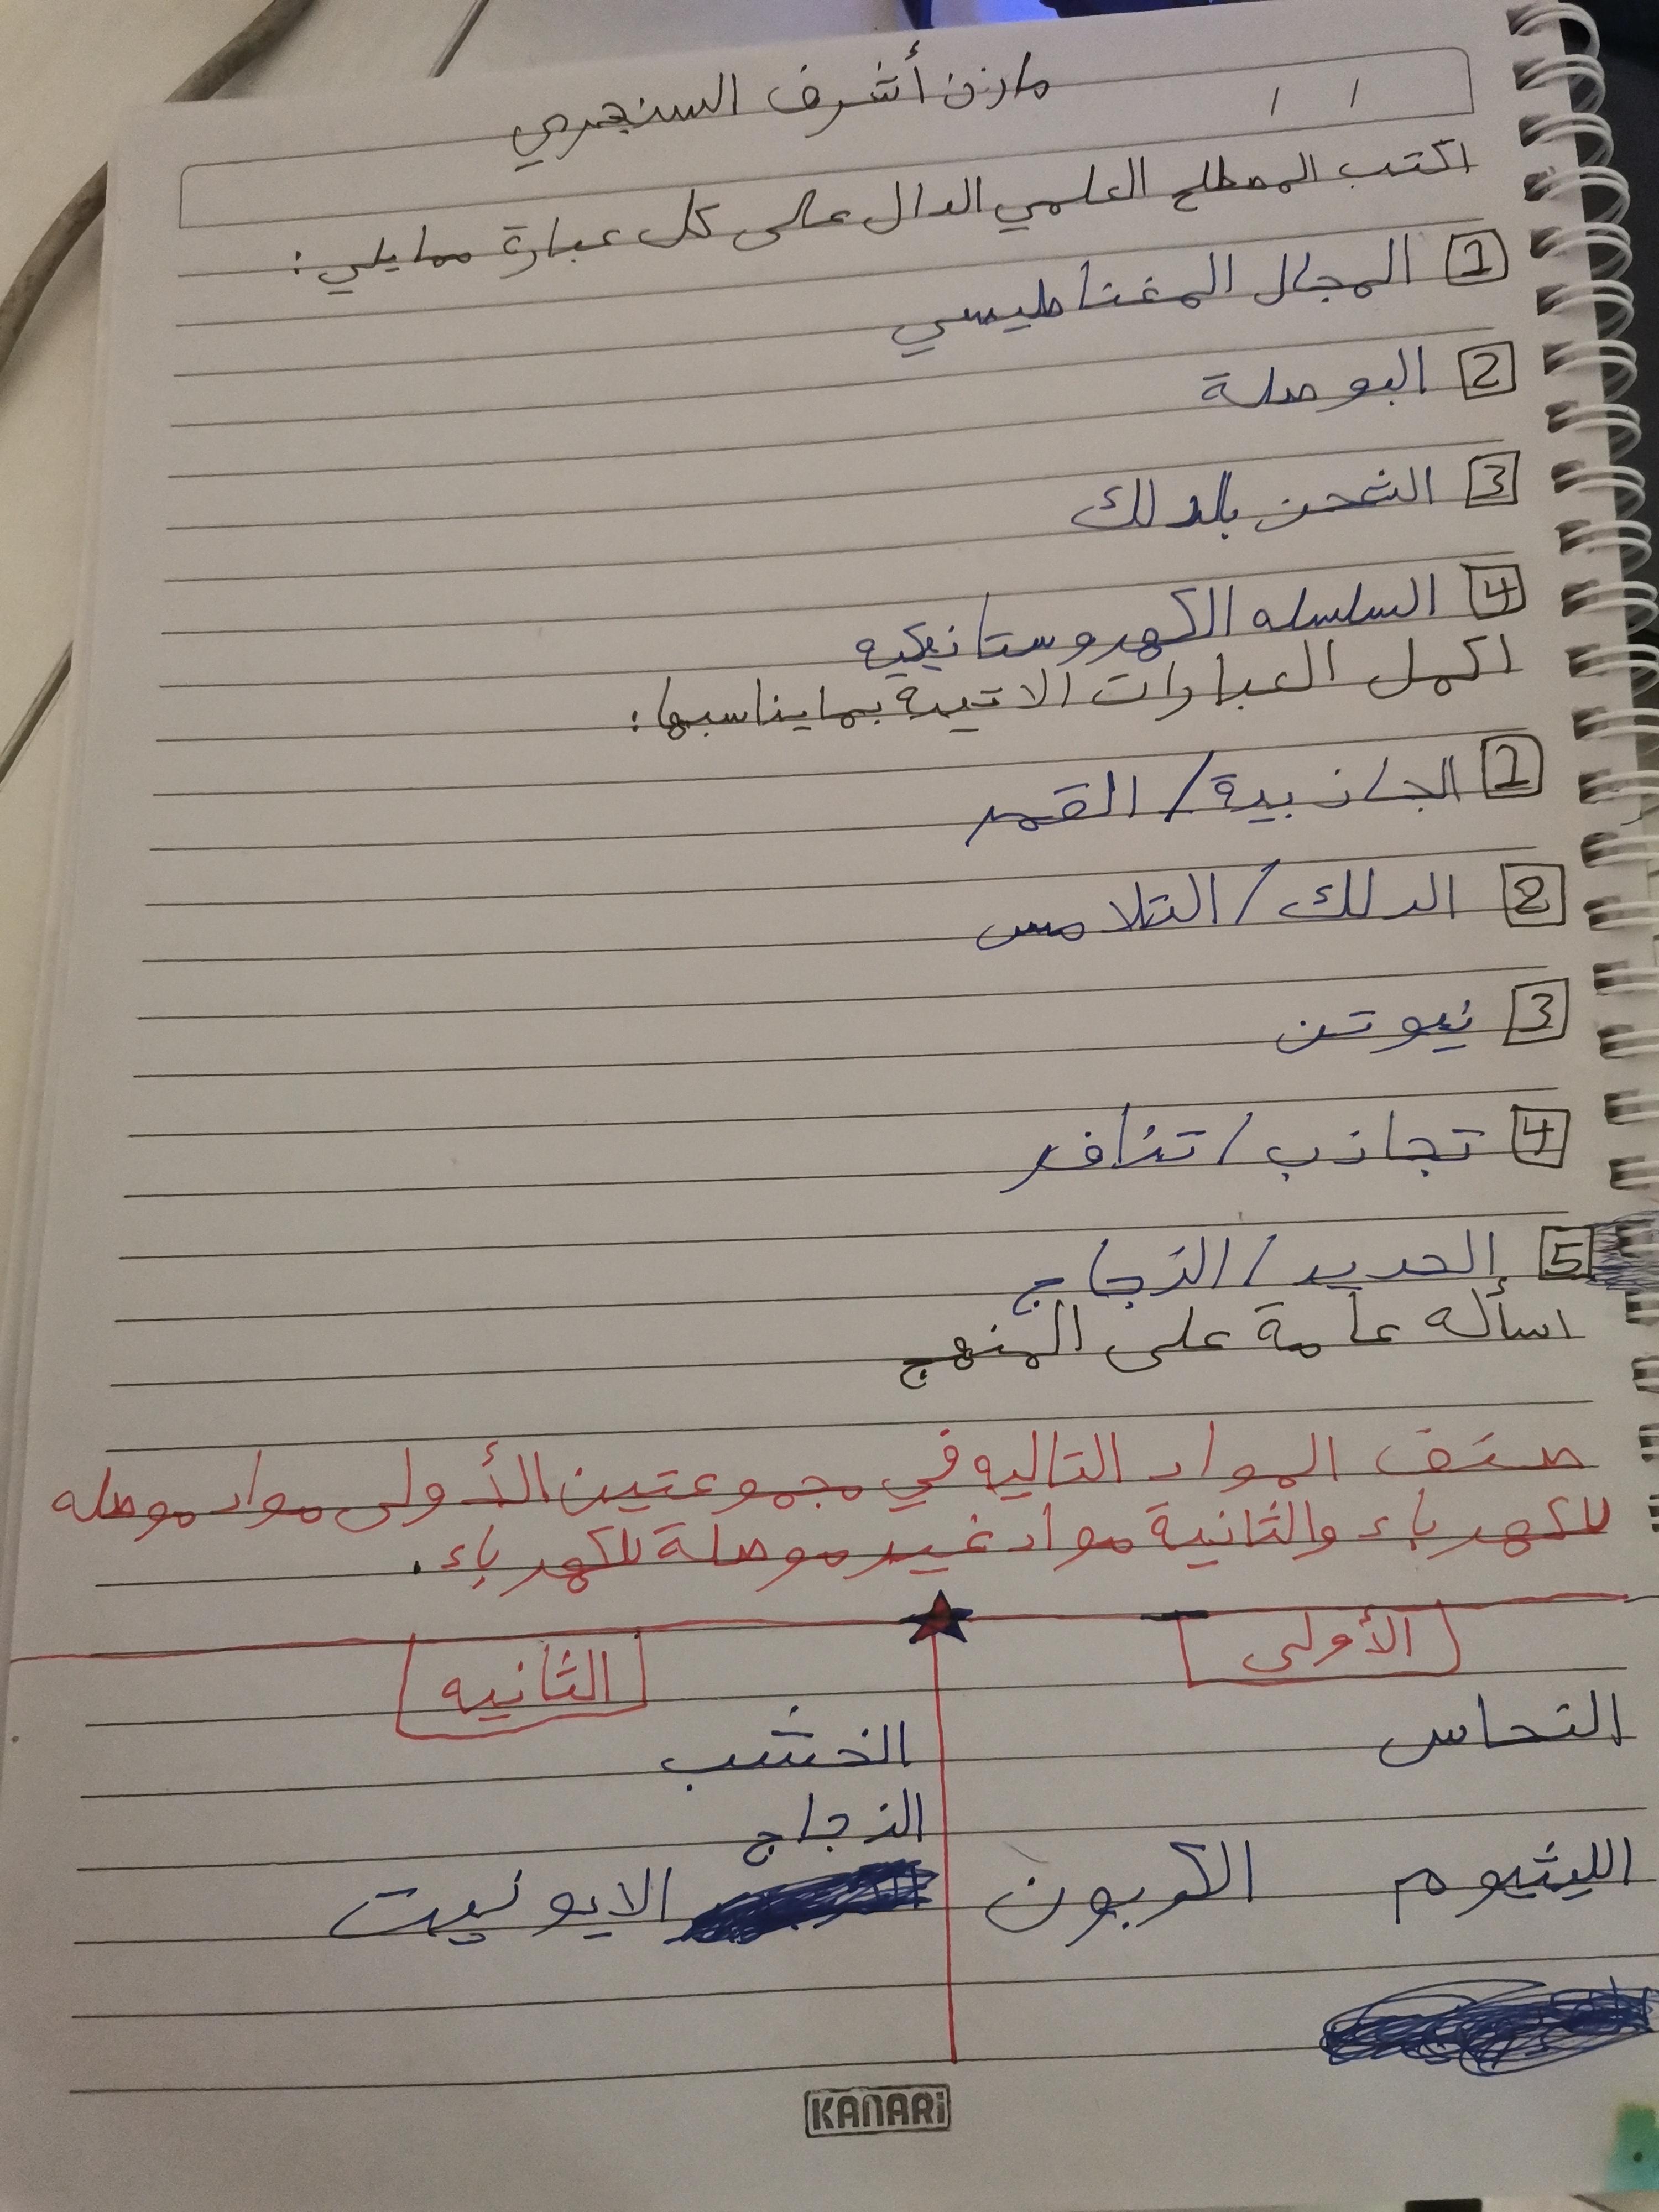 مازن أشرف السنجري
/ /
اكتب المصطلح العلمي الدال على كل عبارة ممايلي :
1 المجال المغناطيسي
2 البوصلة
3 الشحن بلدلك
4 السلسله الكهروستانيكيه
اكمل العبارات الاتية بمايناسبها :
1 الجاذبية / القمر
2 الدلك / التلامس
3 نيوتن
4 تجاذب / تنافر
5 الحديد / الزجاج
اسأله عامة على المنهج
صنف المواد التاليه في مجموعتين الأولى مواد موصله
للكهرباء والثانية مواد غير موصلة للكهرباء .
الأولى الثانيه
النحاس الخشب
الزجاج
الليثيوم الكربون الايونيت
KANARi